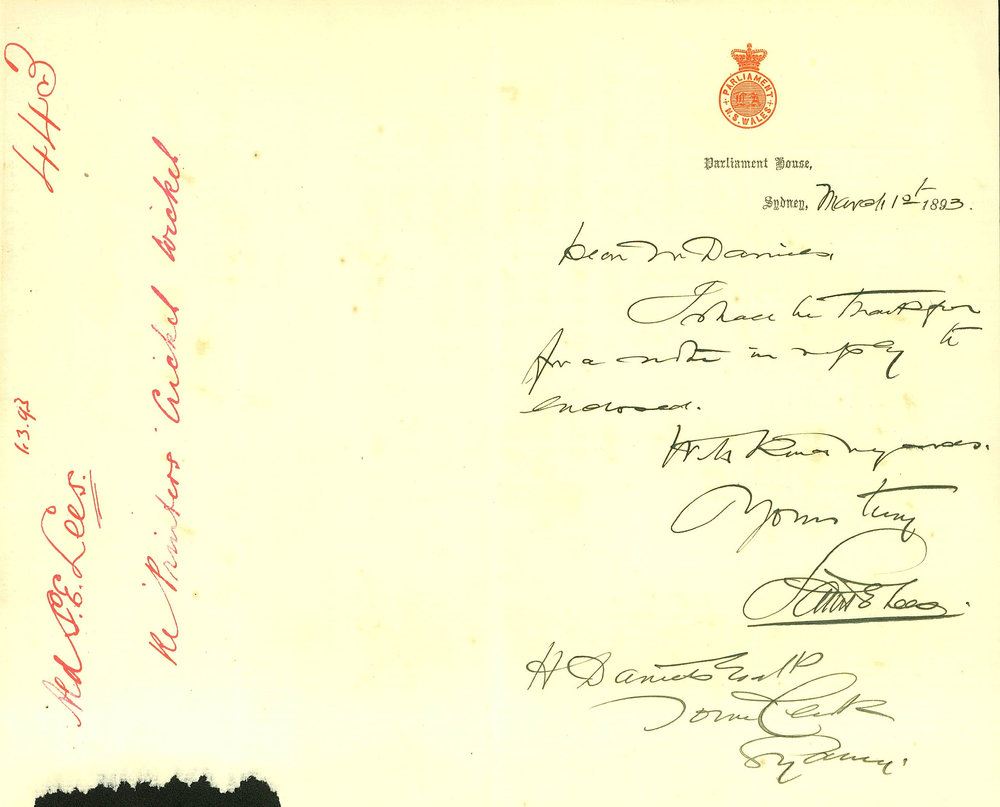 443
1.3.93
Ald S. E. Lees.
Re Printers Cricket Wicket
PARLIAMENT
N.S. WALES
Parliament House,
Sydney, March 1st 1893.
Dear Mr Daniels,
I shall be thankful
for a note in reply to
enclosed.
With kind regards.
Yours truly
Saml E Lees.
H Daniels Esq
Town Clerk
Sydney.